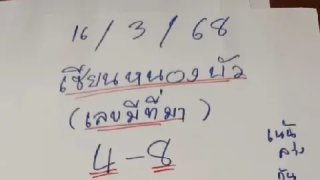 16 / 3 / 68
เซียนหนองบัว
(เลขมีที่มา)
4-8
เน้น
ล่าง
กัน